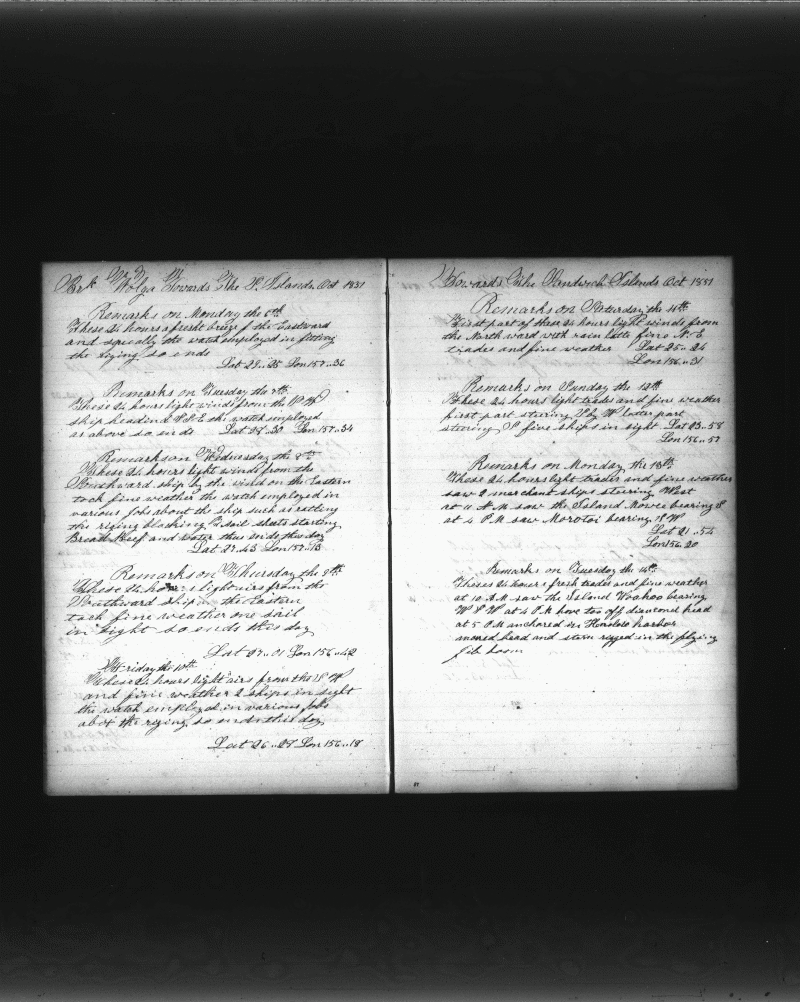 Brk Volga Towards The S. Islands Oct 1851
Remarks on Monday the 6th
These 24 hours a fresht breeze f the Eastward
and specally the watch employed in fitting
the riging so ends
Lat 29..25 Lon 157..36
Remarks on Tuesday the 7th
These 24 hours light winds from the
ship heading S.S.E the water employed
as above so ends Lat 28..30 Lon 157..34
Remarks on Wednesday the 8th
These 24 hours light winds from the
Southward ship by the wind on the Eastern
tack fine weather the watch employed in
various jobs about the ship such as ratling
the riging blacking sail sheets starting
Bread Beef and water thus ends this day
Lat 27.43 Lon 157..13
Remarks on Thursday the 9th
These 24 hours light airs from the
Southward ship in the Eastern
tack fine weather one sail
in sight so ends this day
Lat 27..01 Lon 156..42
Friday the 10th
These 24 hours light airs from the S W
and fine weather 2 ships in sight
the watch employed in various jobs
abot the riging so ends this day
Lat 26..28 Lon 156..18
Towards The Sandwich Islands Oct 1851
Remarks on Saturday the 11th
First part of these 24 hours light winds from
the North ward with rain latte fine N. E
trades and fine weather Lat 25..24
Lon 156..31
Remarks on Sunday the 12th
These 24 hours light trades and fine weather
first part steering S by W later part
steering S five ships in sight Lat 23..58
Lon 156..57
Remarks on Monday the 13th
These 24 hours light trades and fine weather
saw 2 merchant ships steering West
at 11 A M saw the Island Mowie bearing S
at 4 P M saw Morotoi bearing S W
Lat 21..54
Lon 156..20
Remarks on Tuesday the 14th
Theses 24 hours fresh trades and fine weather
at 10 A M saw the Island Woahoo bearing
W S W at 4 P M hove too off diamond head
at 5 P M anchored in Honolulo harbor
mored head and stern riged in the flying
jib boom